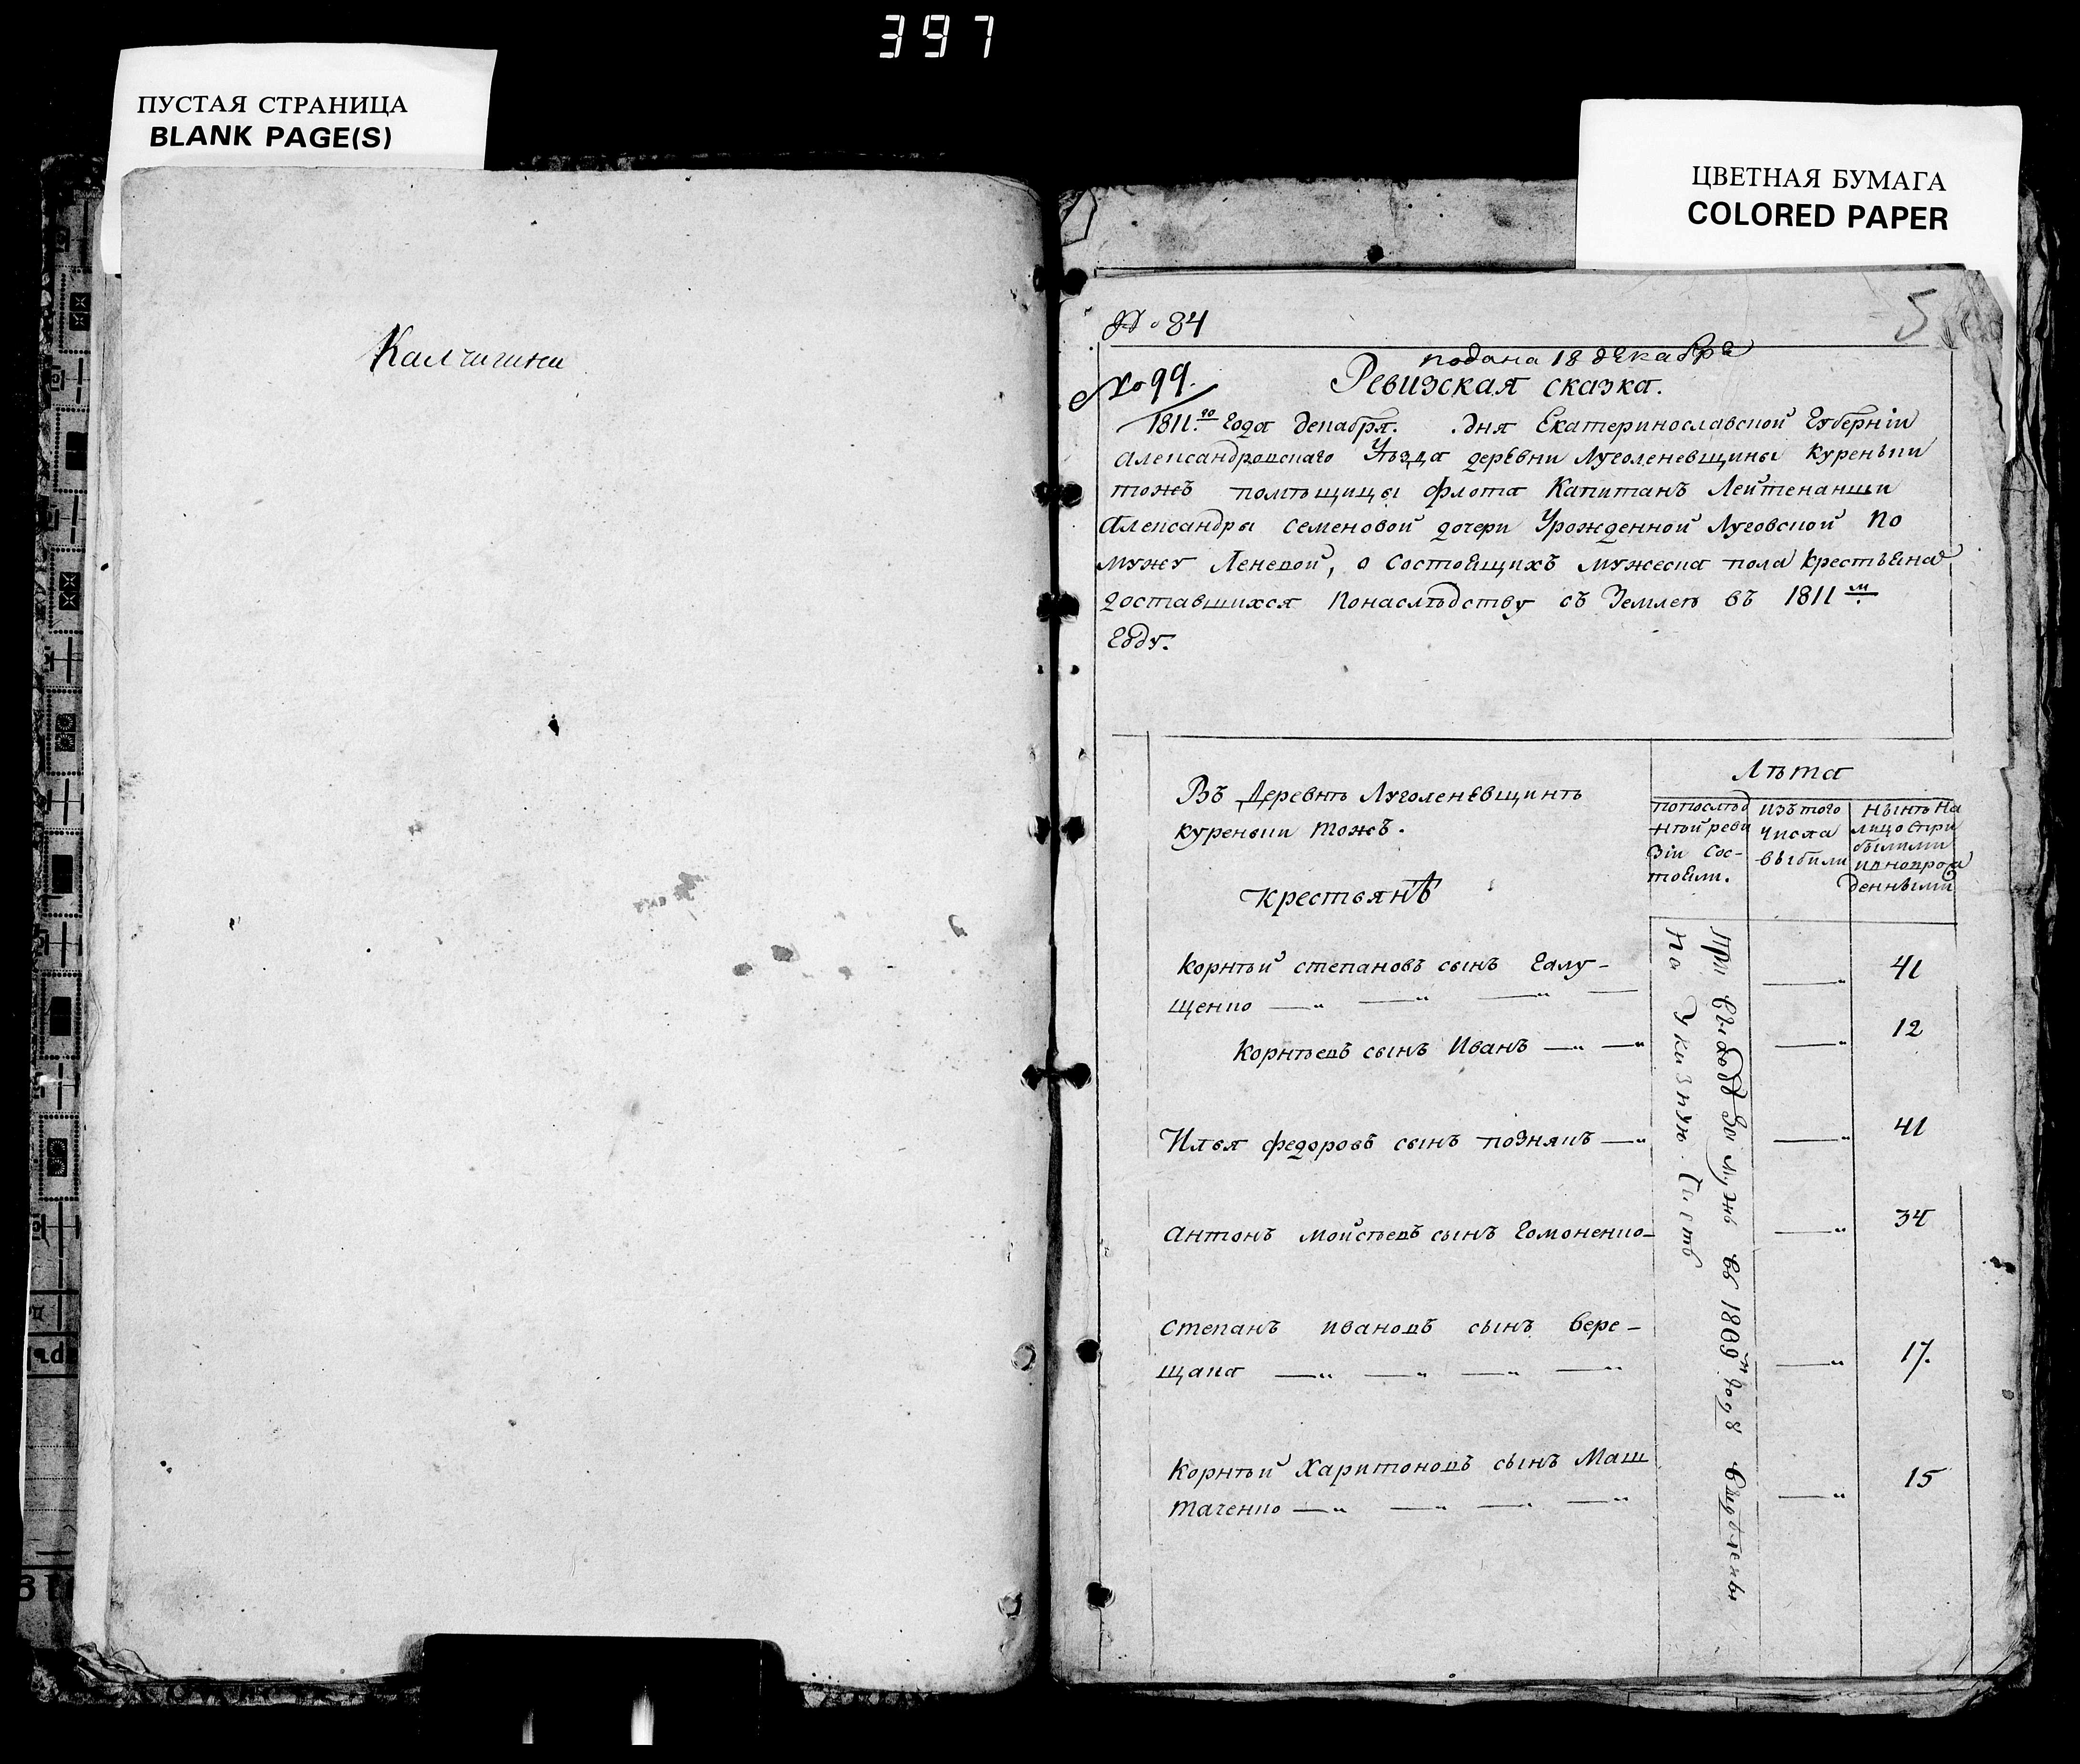 397
ПУСТАЯ СТРАНИЦА
BLANK PAGE(S)
ЦВЕТНАЯ БУМАГА
COLORED PAPER
5
№ 84
подана 18 декабря
№ 99.
Ревизская сказка.
1811.го Года декабря. дня Екатеринославской Губерніи
Александровскаго Уѣзда деревни Луголеневщины Куренки
тожъ помѣщицы флота Капитанъ Лейтенанши
Александры Семеновой дочери Урожденной Луговской по
мужу Леневой, о состоящихъ мужеска пола крестьянахъ
доставшихся понаслѣдству съ Землею въ 1811м
Году.
Въ Деревнѣ Луголеневщинѣ
куреньки тожъ.
Крестьянѣ
Лѣта
попослѣд
нѣй реви
зіи Сос-
тояли.
изъ того
числа
выбили
Нынѣ на
лицо
былыми
денными
Корнѣй степановъ сынъ Галу-
щенко
41
Корнѣевъ сынъ Иванъ
12
Илья федоровъ сынъ познякъ
41
Антонъ мойсѣевъ сынъ Гомоненко
34
Степанъ ивановъ сынъ Бере-
щака
17.
Корнѣй Харитоновъ сынъ Маш
таченко
15
При выходѣ во мужъ въ 1809м году